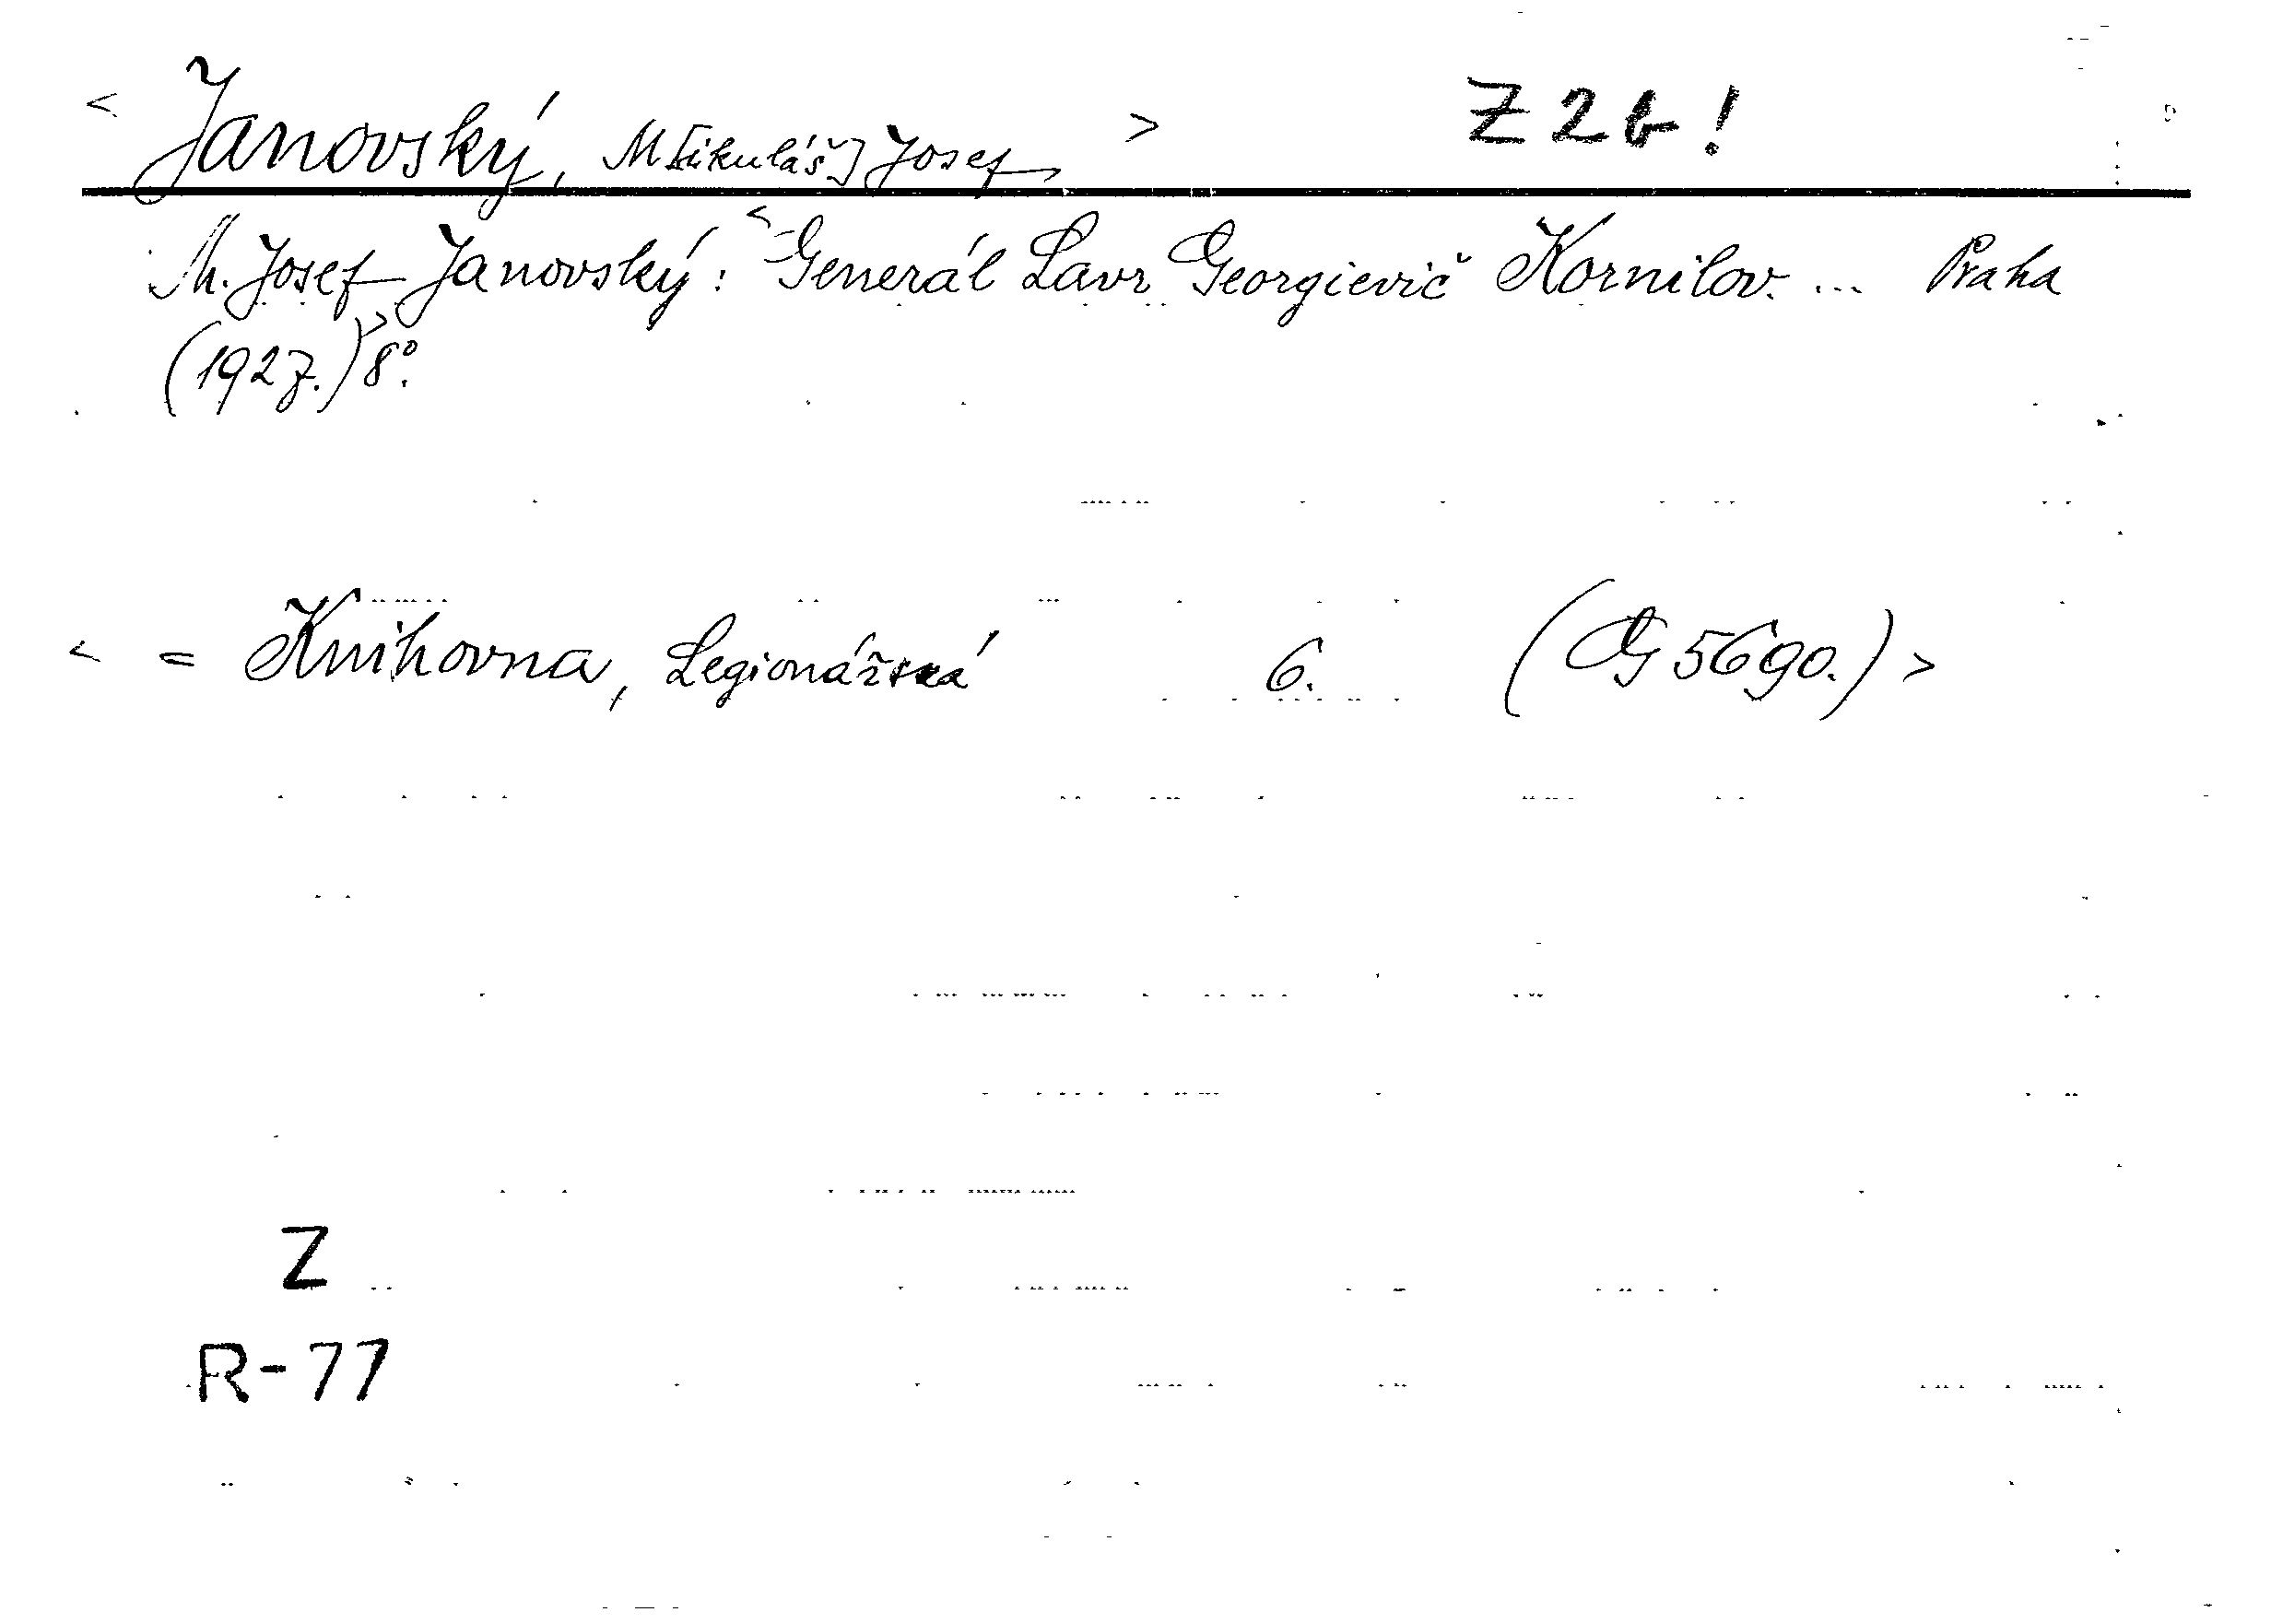 < Janovský, M[ikuláš] Josef > Z 2 b !
M. Josef Janovský: <Generál Lavr Georgievič Kornilov. ... Praha
(1927.)> 8°.
< = Knihovna, Legionářská 6. (G 5690.) >
Z
R-77